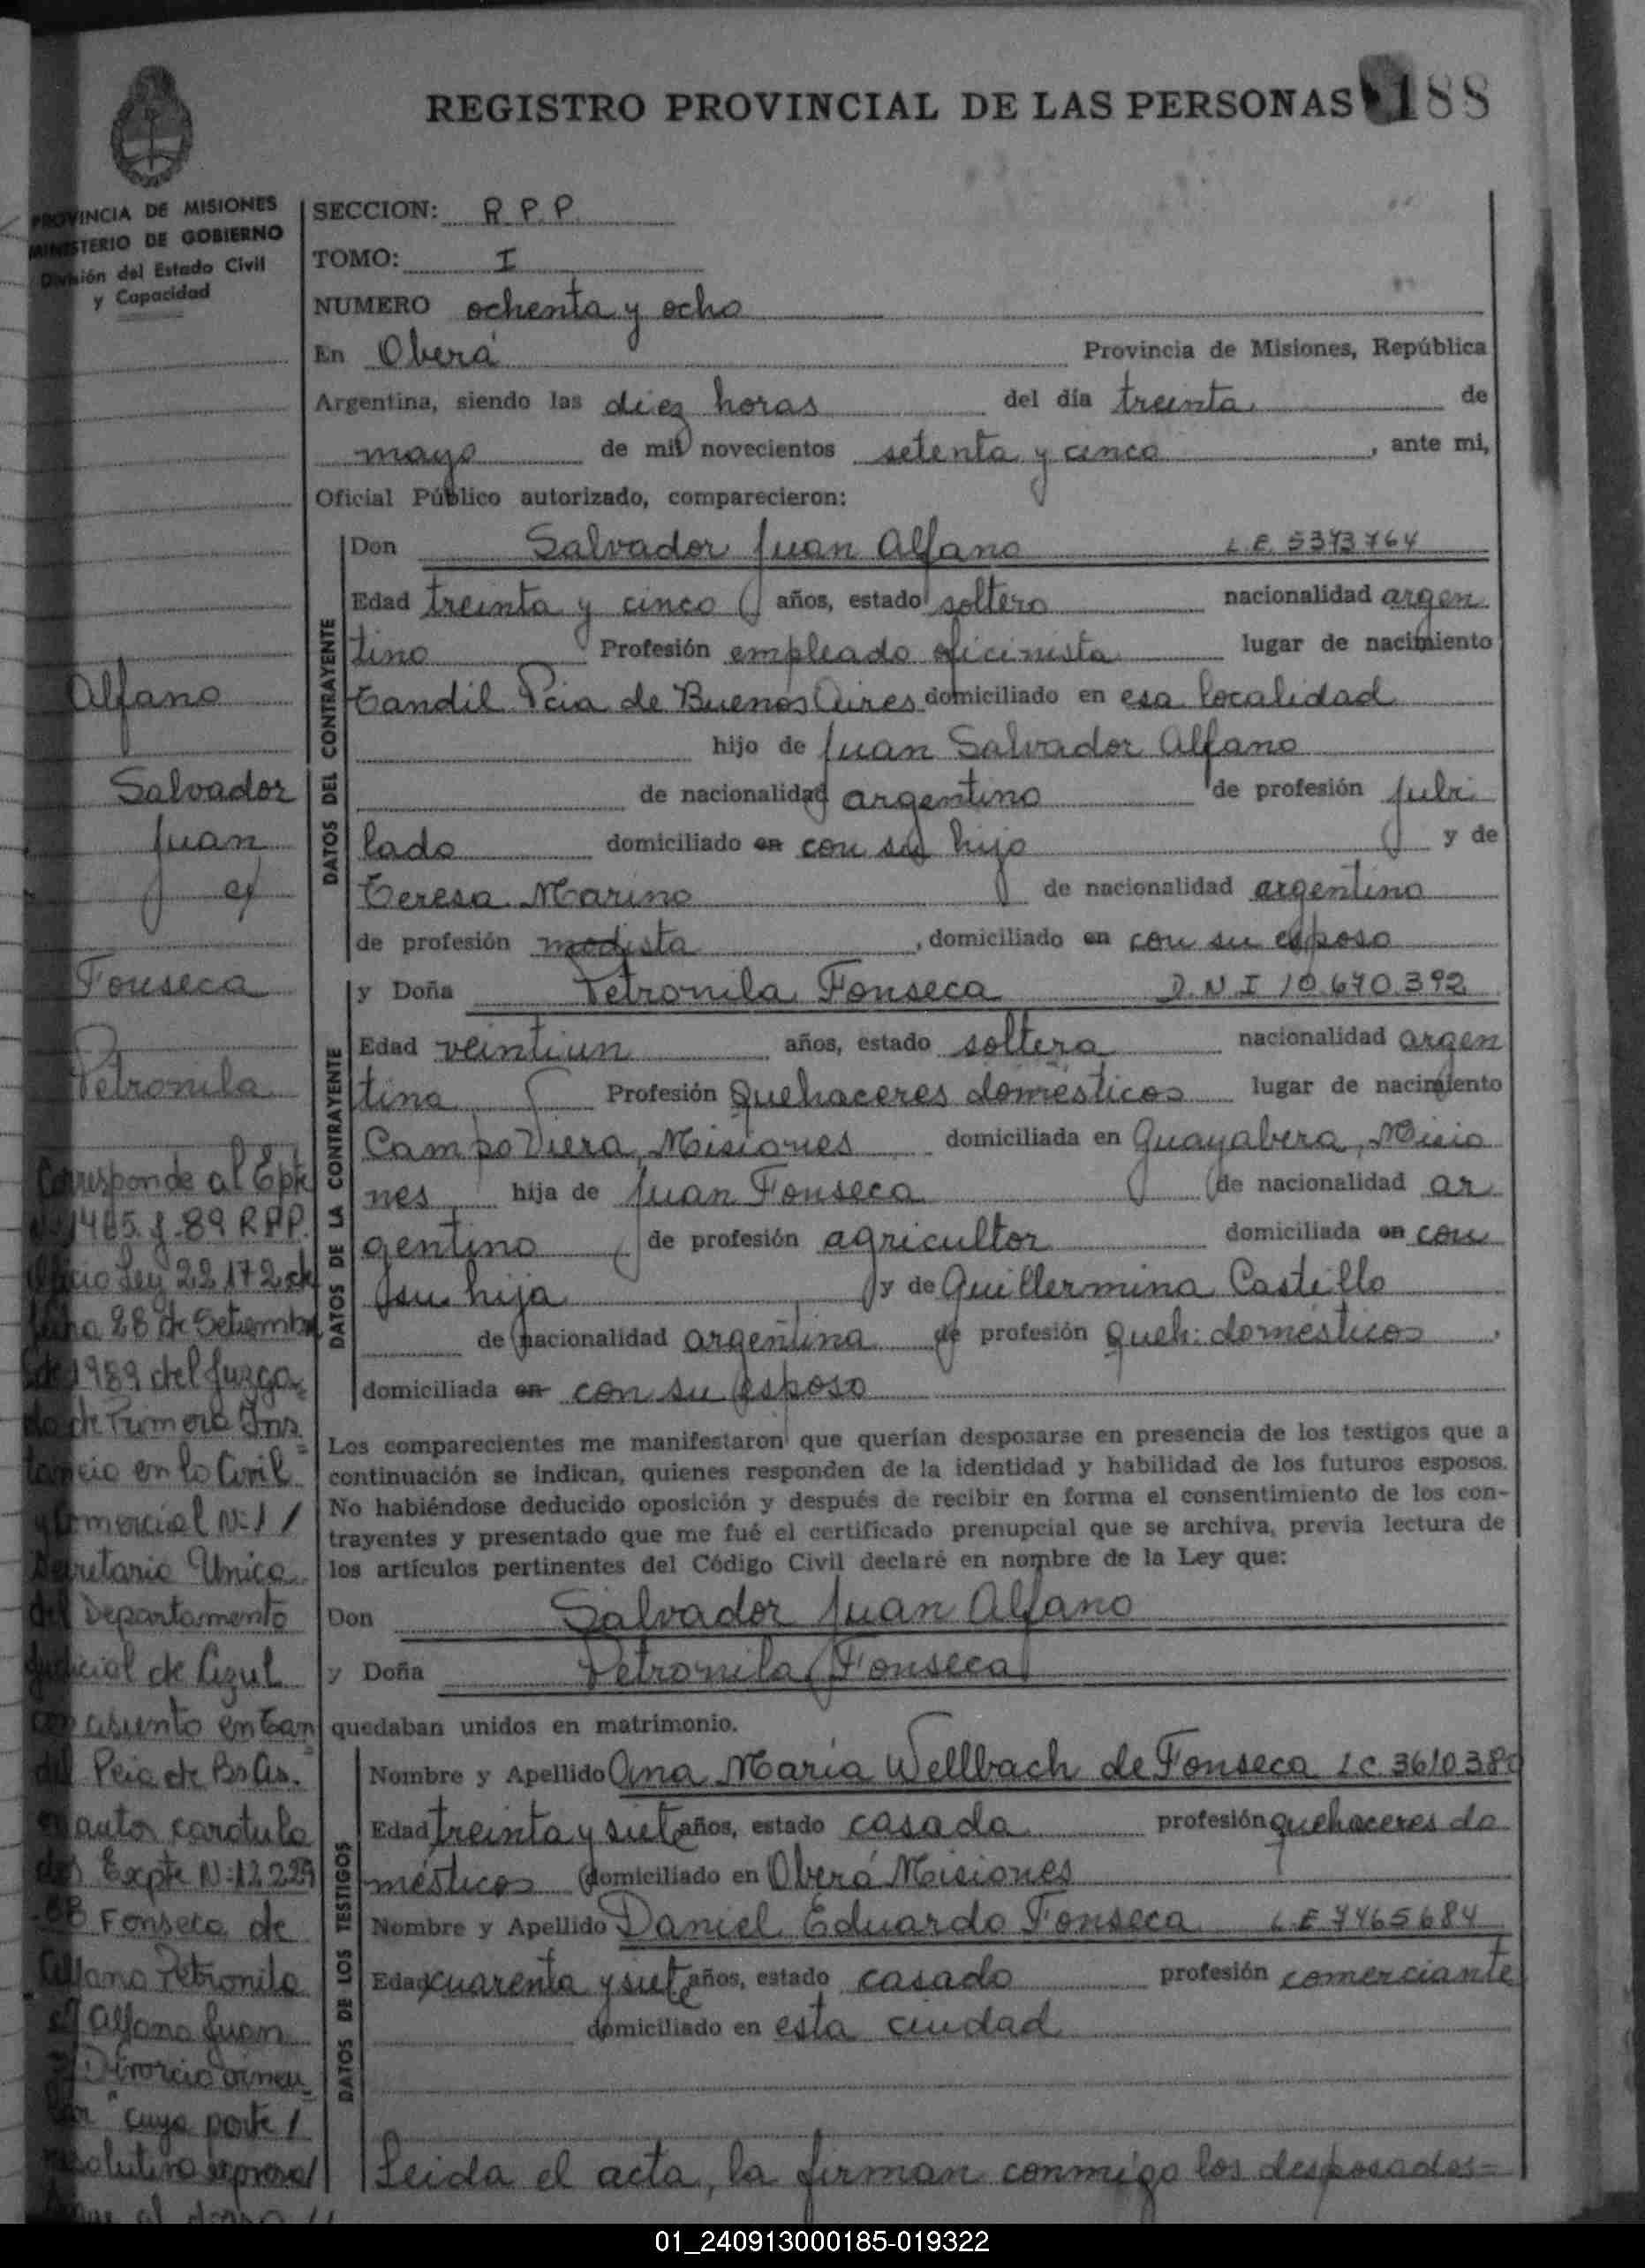 REGISTRO PROVINCIAL DE LAS PERSONAS 188
PROVINCIA DE MISIONES
MINISTERIO DE GOBIERNO
División del Estado Civil
y Capacidad
SECCION: R.P.P.
TOMO: I
NUMERO ochenta y ocho
En Oberá Provincia de Misiones, República
Argentina, siendo las diez horas del día treinta de
mayo de mil novecientos setenta y cinco, ante mi,
Oficial Público autorizado, comparecieron:
DATOS DEL CONTRAYENTE
Don Salvador Juan Alfano L.E. 5373764
Edad treinta y cinco años, estado soltero nacionalidad argen
tino Profesión empleado oficinista lugar de nacimiento
Tandil Pcia de Buenos Aires domiciliado en esa localidad
hijo de Juan Salvador Alfano
de nacionalidad argentino de profesión jubi
lado domiciliado en con su hijo y de
Teresa Marino de nacionalidad argentina
de profesión modista, domiciliado en con su esposo
DATOS DE LA CONTRAYENTE
y Doña Petronila Fonseca D.N.I 10.670.392
Edad veintiun años, estado soltera nacionalidad argen
tina Profesión Quehaceres domésticos lugar de nacimiento
Campo Viera, Misiones domiciliada en Guayabera, Misio
nes hija de Juan Fonseca de nacionalidad ar
gentino de profesión agricultor domiciliada en con
su hija y de Guillermina Castillo
de nacionalidad argentina de profesión Queh: domésticos,
domiciliada en con su esposo
Los comparecientes me manifestaron que querían desposarse en presencia de los testigos que a
continuación se indican, quienes responden de la identidad y habilidad de los futuros esposos.
No habiéndose deducido oposición y después de recibir en forma el consentimiento de los con-
trayentes y presentado que me fué el certificado prenupcial que se archiva, previa lectura de
los artículos pertinentes del Código Civil declaré en nombre de la Ley que:
Don Salvador Juan Alfano
y Doña Petronila Fonseca
quedaban unidos en matrimonio.
DATOS DE LOS TESTIGOS
Nombre y Apellido Ana María Wellbach de Fonseca L.C. 3610380
Edad treinta y siete años, estado casada profesión quehaceres do
mésticos domiciliado en Oberá Misiones
Nombre y Apellido Daniel Eduardo Fonseca L.E 7465684
Edad cuarenta y siete años, estado casado profesión comerciante
domiciliado en esta ciudad
Leida el acta, la firman conmigo los desposados=
Alfano
Salvador
Juan
c/
Fonseca
Petronila
Corresponde al Expte
1465 f. 89 RPP.
Oficio Ley 22172 de
fecha 28 de Setiembre
de 1989 del Juzga
do de Primera Ins
tancia en lo Civil
y Comercial N: 1 /
Secretaria Unica
del Departamento
Judicial de Azul
con asiento en Tan
dil Pcia de Bs As.
autos caratula
dos Expte N: 12.229
Fonseca de
Alfano Petronila
c/ Alfano Juan
Divorcio vincu
lar" cuya parte /
resolutiva expresa/
01_240913000185-019322